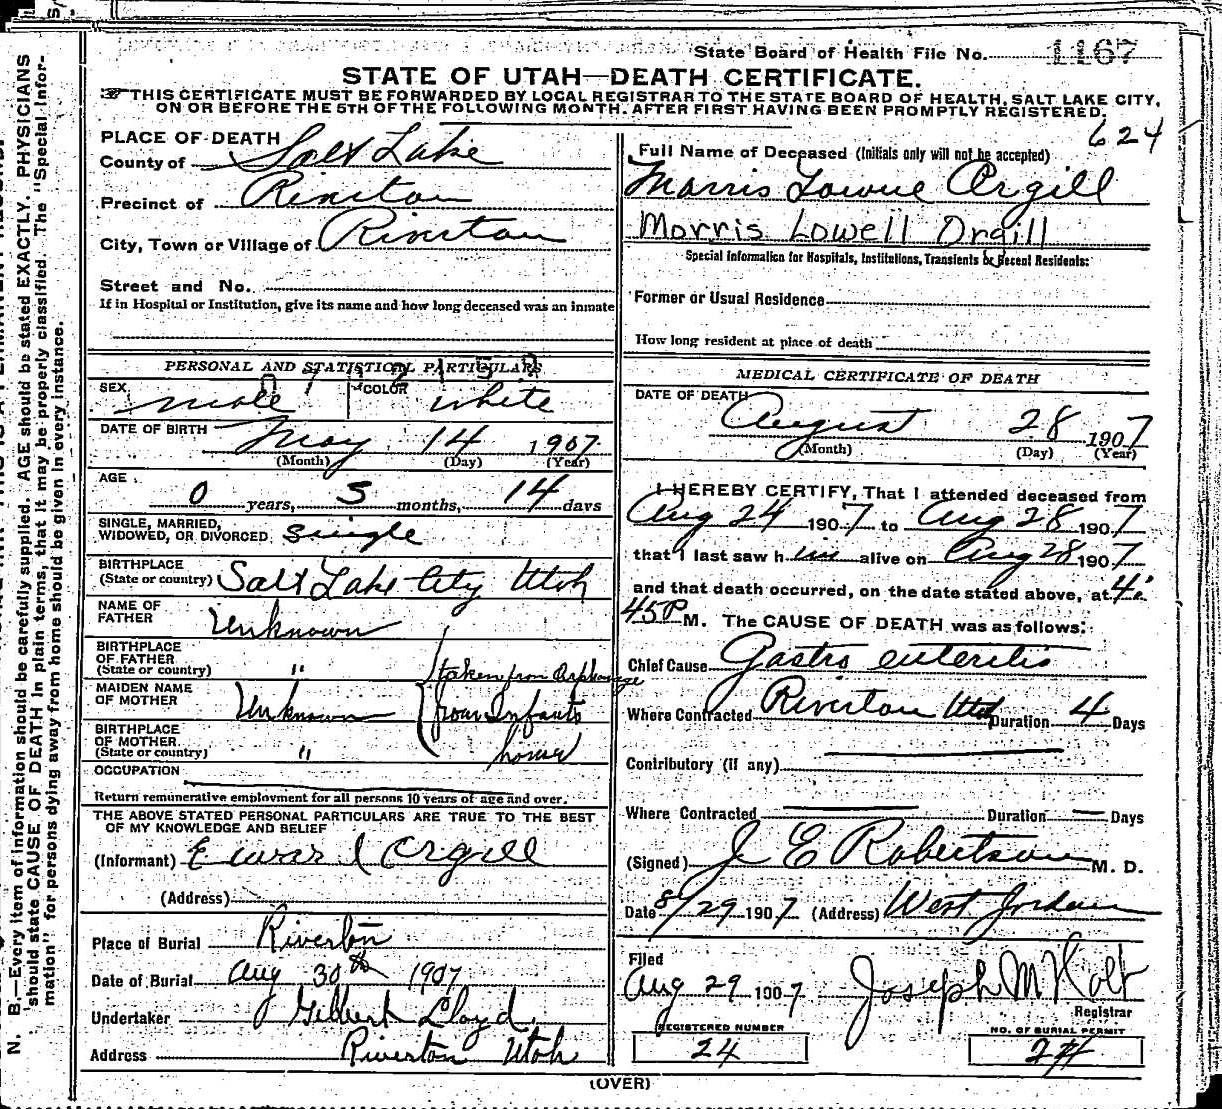 State Board of Health File No. 1167
STATE OF UTAH—DEATH CERTIFICATE.
THIS CERTIFICATE MUST BE FORWARDED BY LOCAL REGISTRAR TO THE STATE BOARD OF HEALTH, SALT LAKE CITY,
ON OR BEFORE THE 5TH OF THE FOLLOWING MONTH. AFTER FIRST HAVING BEEN PROMPTLY REGISTERED.
624
PLACE OF DEATH
County of Salt Lake
Precinct of Riverton
City, Town or Village of Riverton
Street and No.
If in Hospital or Institution, give its name and how long deceased was an inmate
PERSONAL AND STATISTICAL PARTICULARS
SEX male COLOR white
DATE OF BIRTH May 14 1907
(Month) (Day) (Year)
AGE
0 years, 3 months, 14 days
SINGLE, MARRIED,
WIDOWED, OR DIVORCED single
BIRTHPLACE
(State or country) Salt Lake City Utah
NAME OF
FATHER Unknown
BIRTHPLACE
OF FATHER
(State or country) " taken from Orphonage
MAIDEN NAME
OF MOTHER Unknown from Infants
BIRTHPLACE
OF MOTHER
(State or country) " home
OCCUPATION
Return remunerative employment for all persons 10 years of age and over.
THE ABOVE STATED PERSONAL PARTICULARS ARE TRUE TO THE BEST
OF MY KNOWLEDGE AND BELIEF
(Informant) Orgill
(Address)
Place of Burial Riverton
Date of Burial Aug 30th 1907
Undertaker Gilbert Lloyd
Address Riverton Utah
Full Name of Deceased (Initials only will not be accepted)
Morris Lowne Orgill
Morris Lowell Orgill
Special Information for Hospitals, Institutions, Transients or Recent Residents:
Former or Usual Residence
How long resident at place of death
MEDICAL CERTIFICATE OF DEATH
DATE OF DEATH
August 28 1907
(Month) (Day) (Year)
I HEREBY CERTIFY, That I attended deceased from
Aug 24 1907 to Aug 28 1907
that I last saw him alive on Aug 28 1907
and that death occurred, on the date stated above, at 4:
45 P M. The CAUSE OF DEATH was as follows:
Chief Cause Gastro enteritis
Where Contracted Riverton Utah Duration 4 Days
Contributory (if any)
Where Contracted Duration Days
(Signed) J E Robertson M. D.
Date 8/29 1907 (Address) West Jordan
Filed
Aug 29 1907 Joseph M Holt
Registrar
REGISTERED NUMBER
24
NO. OF BURIAL PERMIT
24
(OVER)
N. B.—Every item of information should be carefully supplied. AGE should be stated EXACTLY. PHYSICIANS
should state CAUSE OF DEATH in plain terms, that it may be properly classified. The "Special Infor-
mation" for persons dying away from home should be given in every instance.